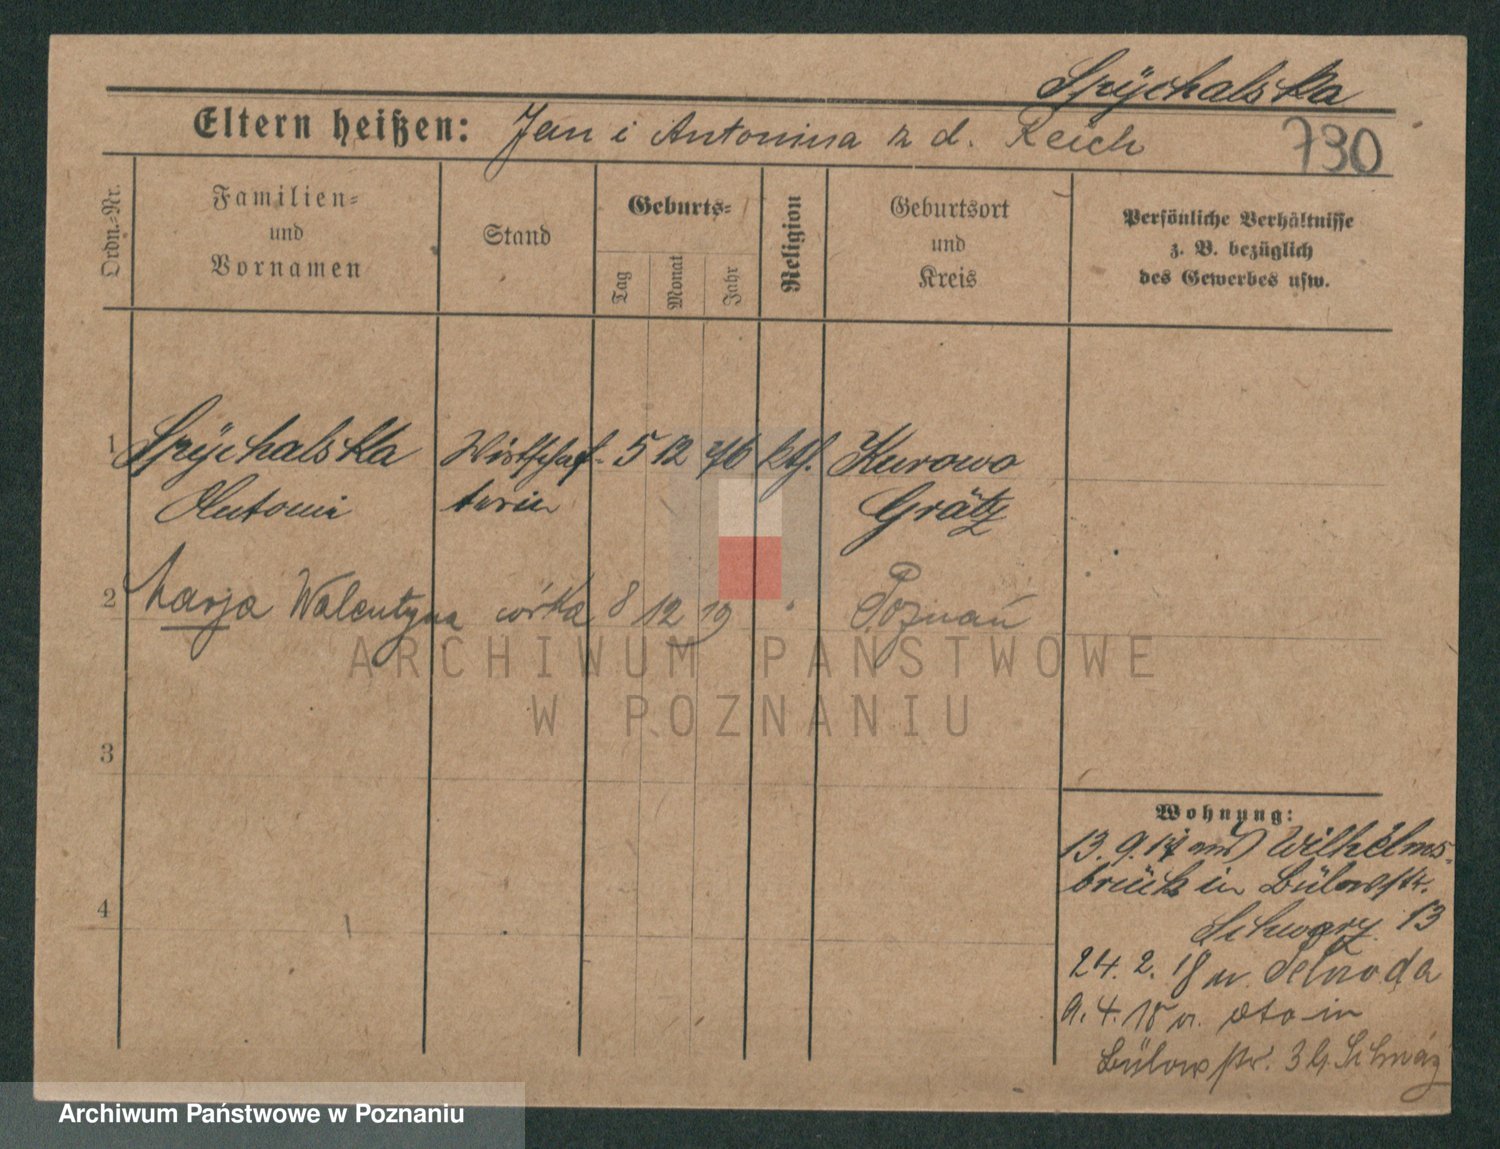 Spÿchalska
Eltern heißen: Jan i Antonina z d. Reich
730
Ordn.-Nr.
Familien-
und
Vornamen
Stand
Geburts-
Tag
Monat
Jahr
Religion
Geburtsort
und
Kreis
Persönliche Verhältnisse
z. B. bezüglich
des Gewerbes usw.
1 Spÿchalska Wirtschaf- 5 12 76 kth. Kurowo
Antoni terin Grätz
2 Marja Walentyna córka 8 12 19 " Poznań
ARCHIWUM PAŃSTWOWE
W POZNANIU
3
4
Wohnung:
13. 9. 17 Wilhelms-
brück in Bülowstr.
13
24. 2. 18 n.
9. 4. 18 v. in
Bülowstr. 3
Archiwum Państwowe w Poznaniu